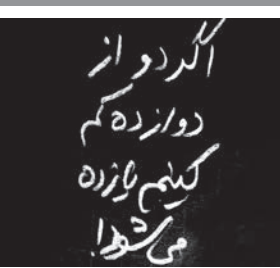 اگر دو از
دوازده کم
کنیم یازده
می‌شود!